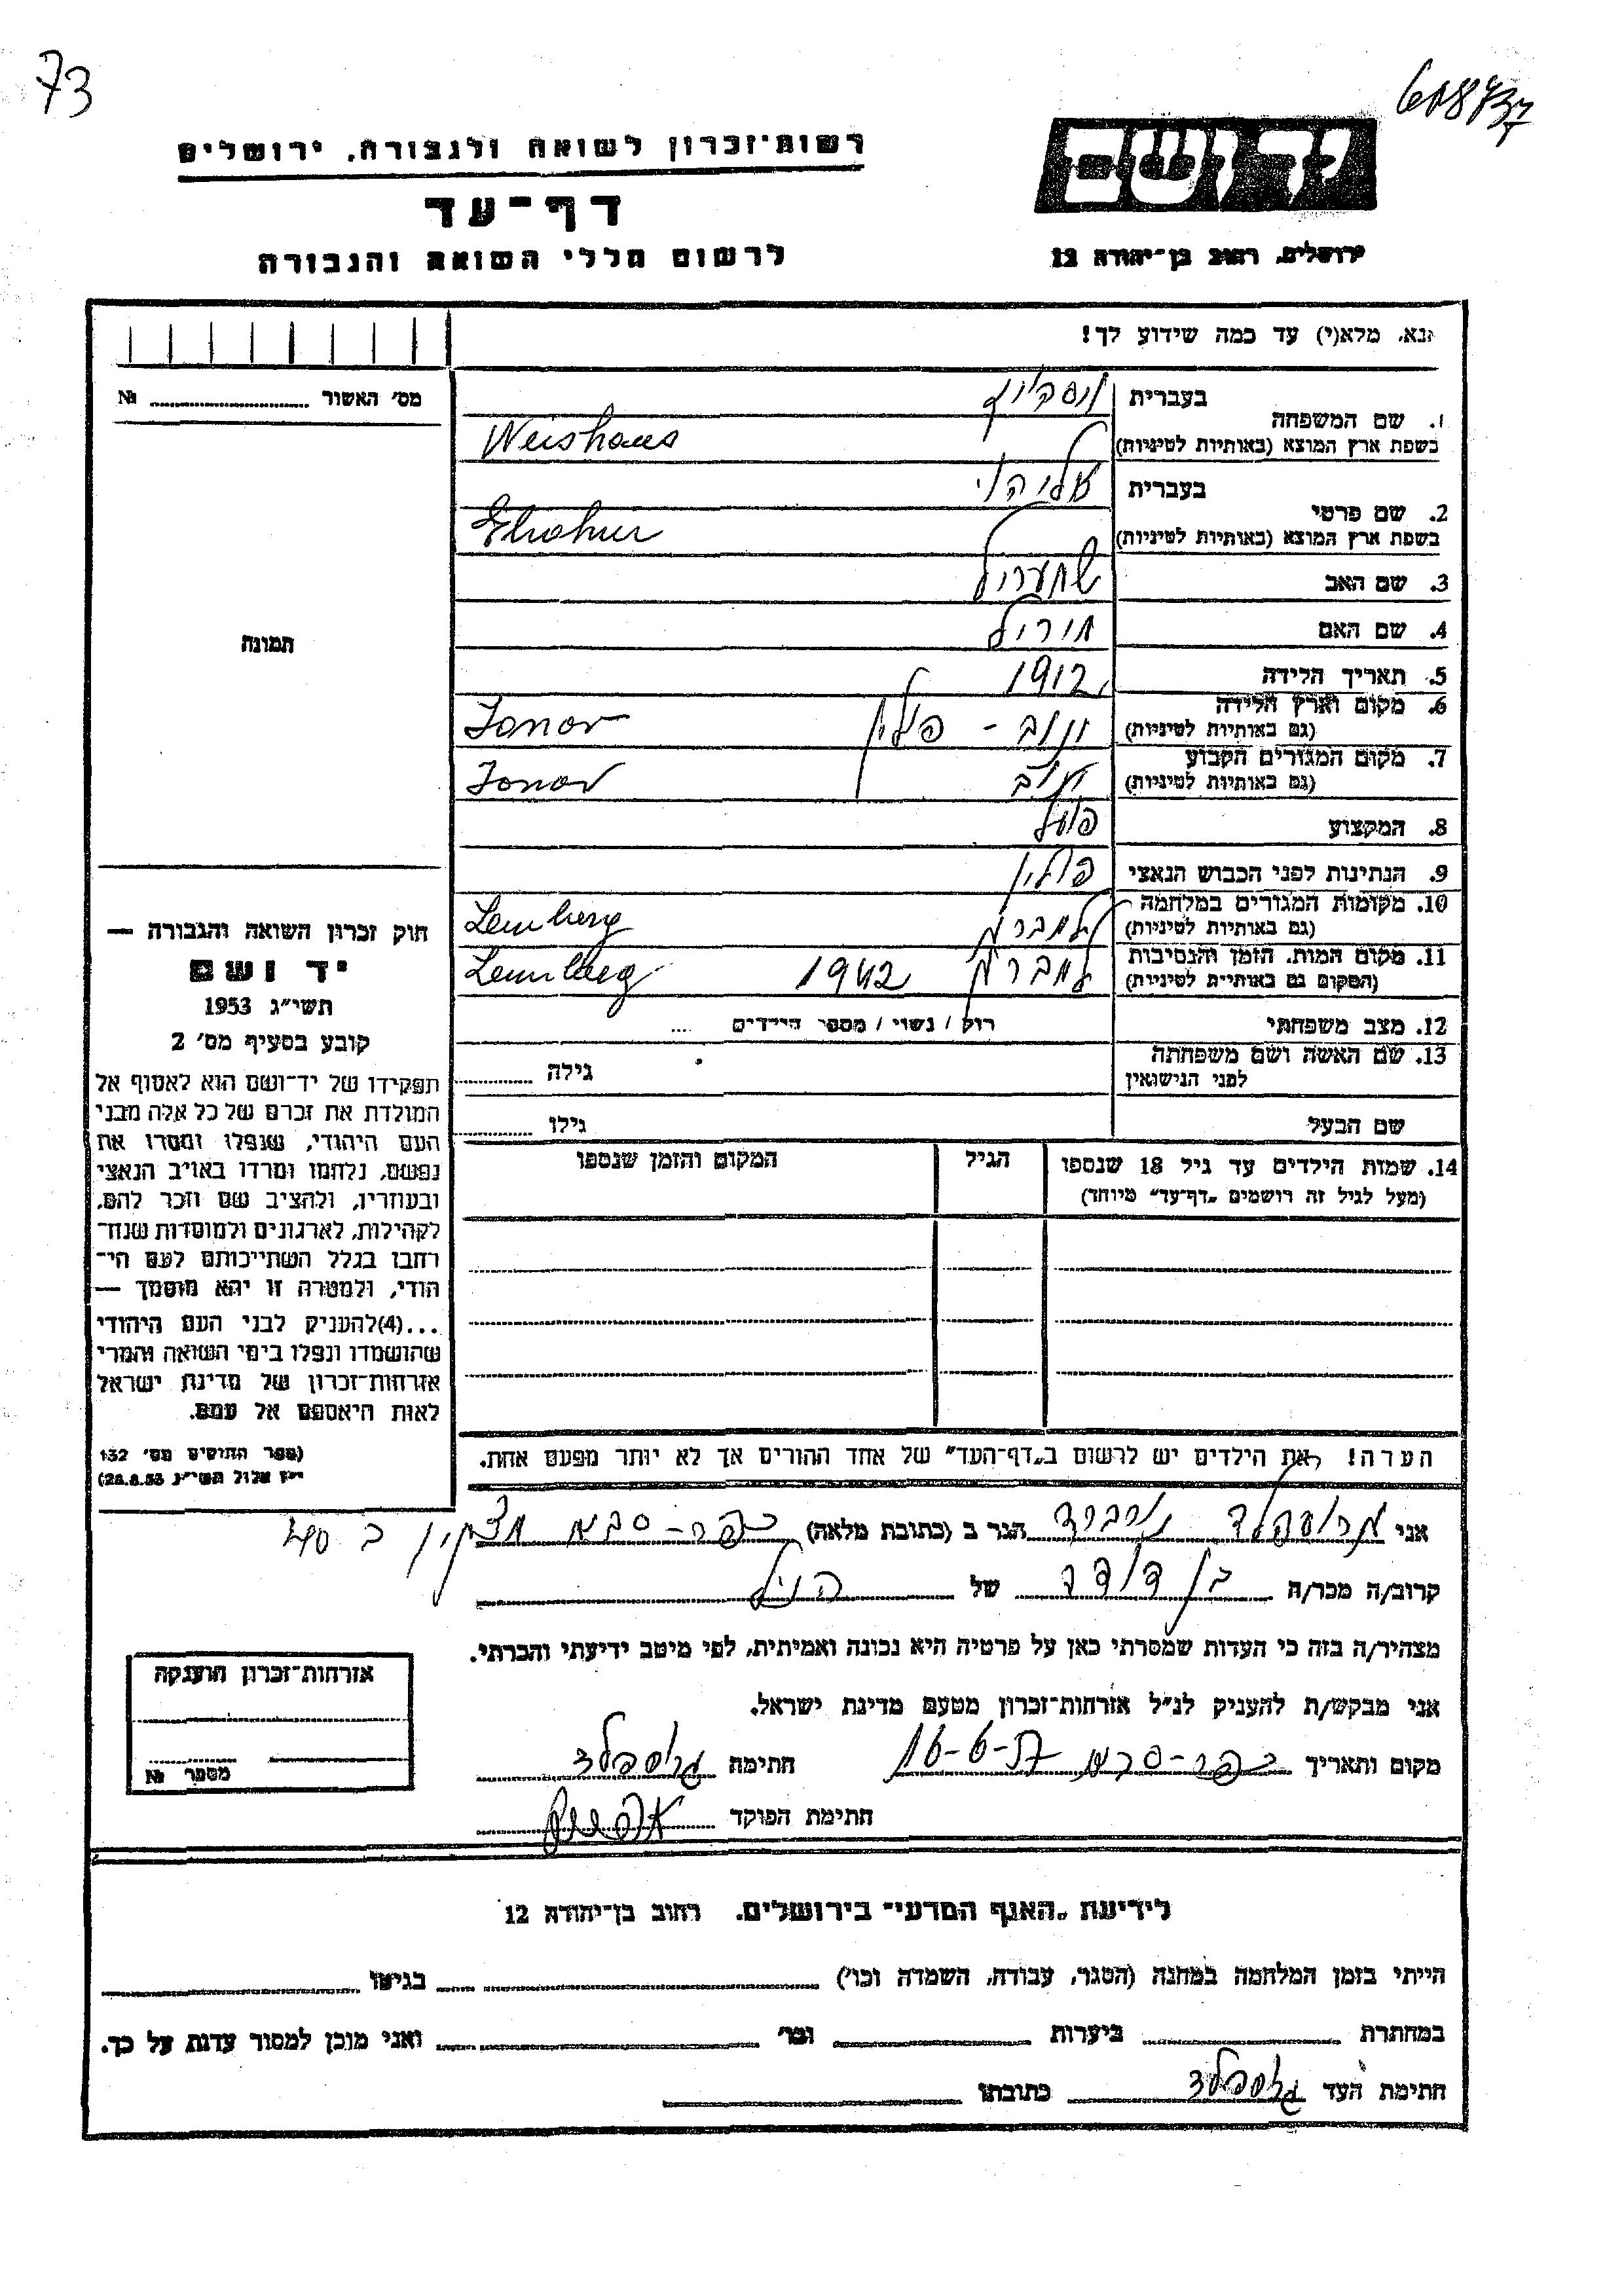 73
רשות־זכרון לשואה ולגבורה, ירושלים
דף־עד
לרשום חללי השואה והגבורה
יד ושם
ירושלים, רחוב בן־יהודה 12
נא, מלא(י) עד כמה שידוע לך!
מס׳ האשור № 
1. שם המשפחה
בעברית
בשפת ארץ המוצא (באותיות לטיניות) Weishaus
2. שם פרטי
בעברית אליהו
בשפת ארץ המוצא (באותיות לטיניות)
3. שם האב
4. שם האם
5. תאריך הלידה 1912
6. מקום וארץ הלידה
(גם באותיות לטיניות) ינוב - פולין Janov
7. מקום המגורים הקבוע
(גם באותיות לטיניות) ינוב Janov
8. המקצוע פועל
9. הנתינות לפני הכבוש הנאצי פולין
10. מקומות המגורים במלחמה
(גם באותיות לטיניות) למברג Lemberg
11. מקום המות, הזמן והנסיבות
(המקום גם באותיות לטיניות) למברג 1942 Lemberg
12. מצב משפחתי רוק / נשוי / מספר הילדים ....
13. שם האשה ושם משפחתה
לפני הנישואין גילה
שם הבעל גילו
14. שמות הילדים עד גיל 18 שנספו
(מעל לגיל זה רושמים „דף־עד״ מיוחד)
הגיל
המקום והזמן שנספו
הערה! את הילדים יש לרשום ב„דף־העד״ של אחד ההורים אך לא יותר מפעם אחת.
תמונה
חוק זכרון השואה והגבורה —
יד ושם
תשי״ג 1953
קובע בסעיף מס׳ 2
תפקידו של יד־ושם הוא לאסוף אל
המולדת את זכרם של כל אלה מבני
העם היהודי, שנפלו ומסרו את
נפשם, נלחמו ומרדו באויב הנאצי
ובעוזריו, ולהציב שם וזכר להם,
לקהילות, לארגונים ולמוסדות שנח־
רבו בגלל השתייכותם לעם הי־
הודי, ולמטרה זו יהא מוסמך —
...(4)להעניק לבני העם היהודי
שהושמדו ונפלו בימי השואה והמרי
אזרחות־זכרון של מדינת ישראל
לאות היאספם אל עמם.
(ספר החוקים מס׳ 132
י״ז אלול תשי״ג 28.8.53)
אני הגר ב (כתובת מלאה) כפר-סבא
קרוב/ה מכר/ה בן דודו של הנ״ל
מצהיר/ה בזה כי העדות שמסרתי כאן על פרטיה היא נכונה ואמיתית, לפי מיטב ידיעתי והכרתי.
אני מבקש/ת להעניק לנ״ל אזרחות־זכרון מטעם מדינת ישראל.
מקום ותאריך כפר-סבא 16-6-57 חתימה
חתימת הפוקד
אזרחות־זכרון הוענקה
מספר №
לידיעת „האגף המדעי״ בירושלים. רחוב בן־יהודה 12
הייתי בזמן המלחמה במחנה (הסגר, עבודה, השמדה וכו׳) בגיטו
במחתרת ביערות וכו׳ ואני מוכן למסור עדות על כך.
חתימת העד כתובתו